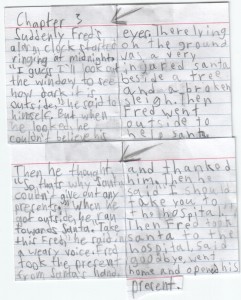 Chapter 3
Suddenly Fred's
alarm clock started
ringing at midnight.
"I guess I'll look out
the window to see
how dark it is
outside," he said to
himself. But when
he looked he
couldn't believe his
eyes. There lying
on the ground
was a very
injured santa
beside a tree
and a broken
sleigh. Then
Fred went
outside to
help santa.
Then he thought
"so that's why Santa
couldn't give out any
presents". When he
got outside Fred ran
towards Santa. Take
this Fred, he said in
a weary voice. Fred
took the present
from Santa's hand
and thanked
him. Then he
said I should
take you to
the hospital.
Then Fred took
santa to the
hospital, said
goodbye, want
home and opened his
present.